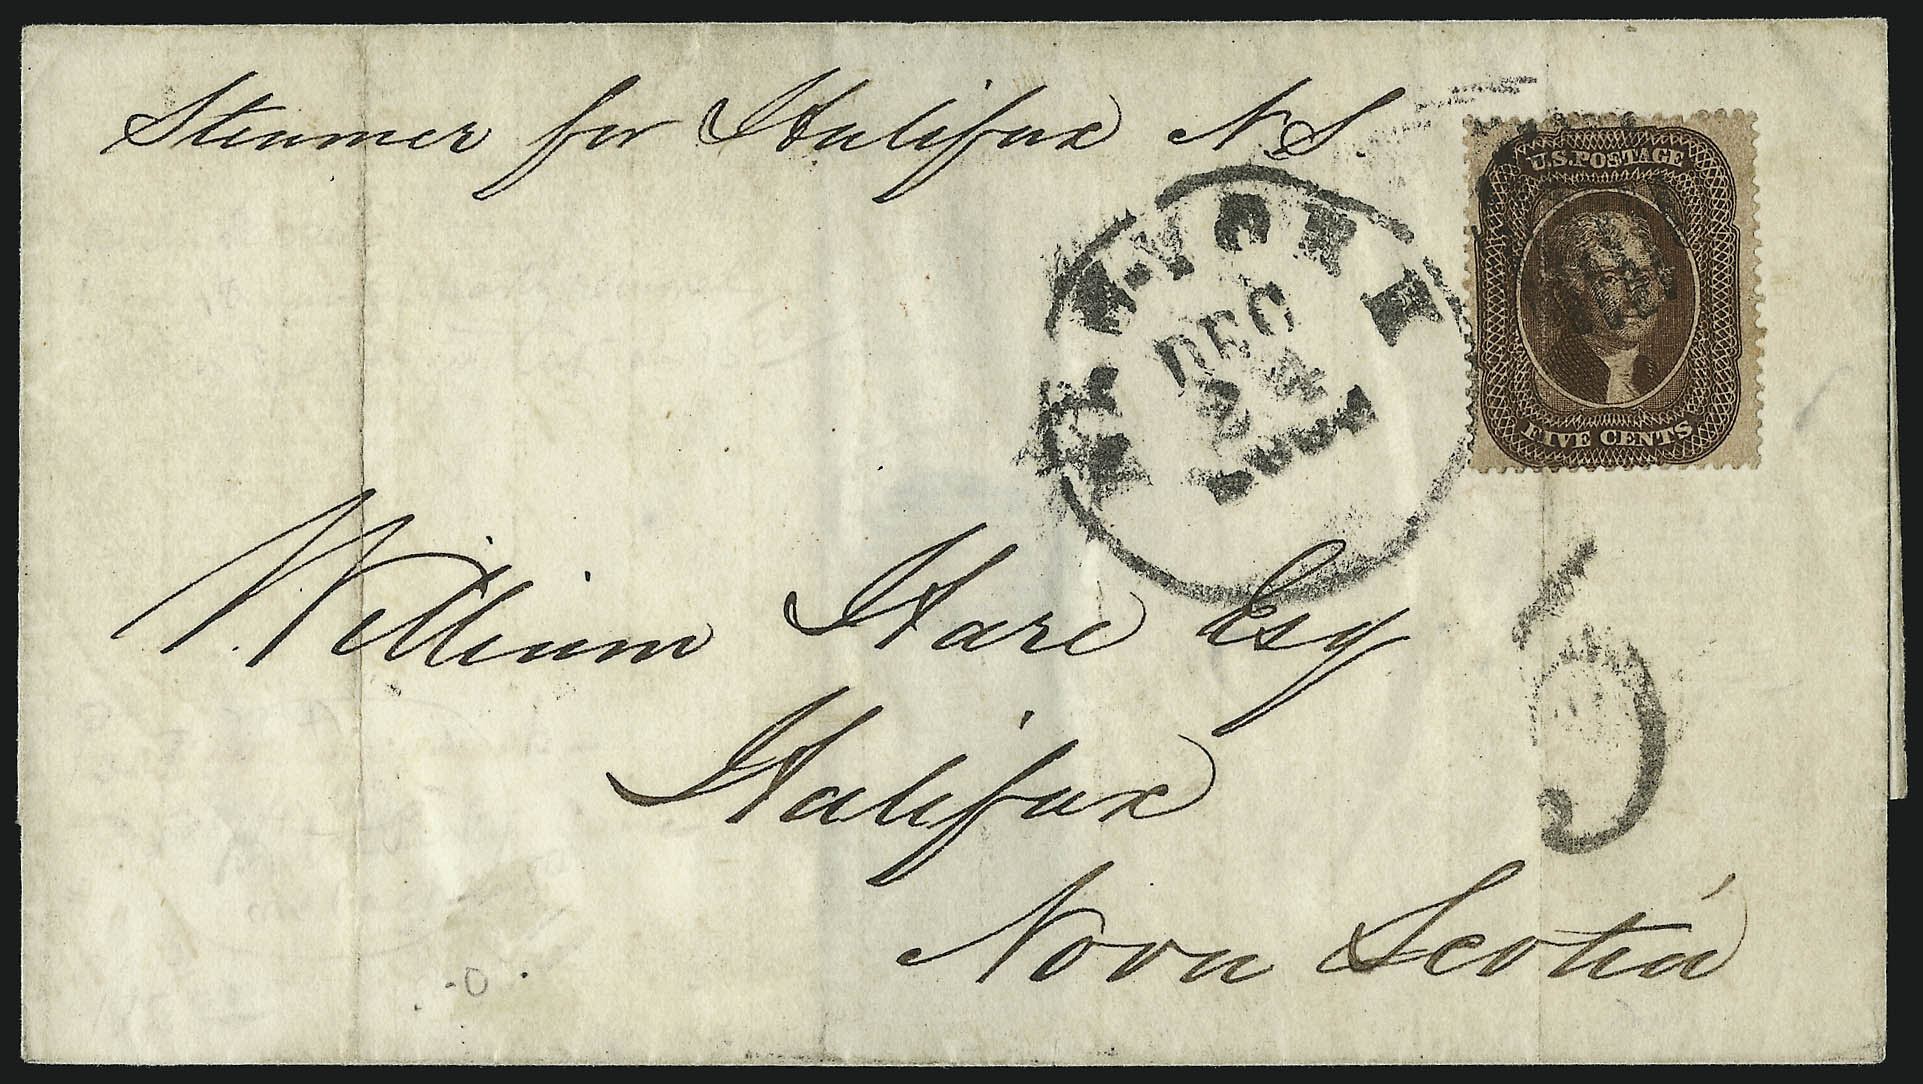 Steamer for Halifax N.S.
U.S. POSTAGE
FIVE CENTS
NEW-YORK
DEC
24
5
William Hare Esq
Halifax
Nova Scotia